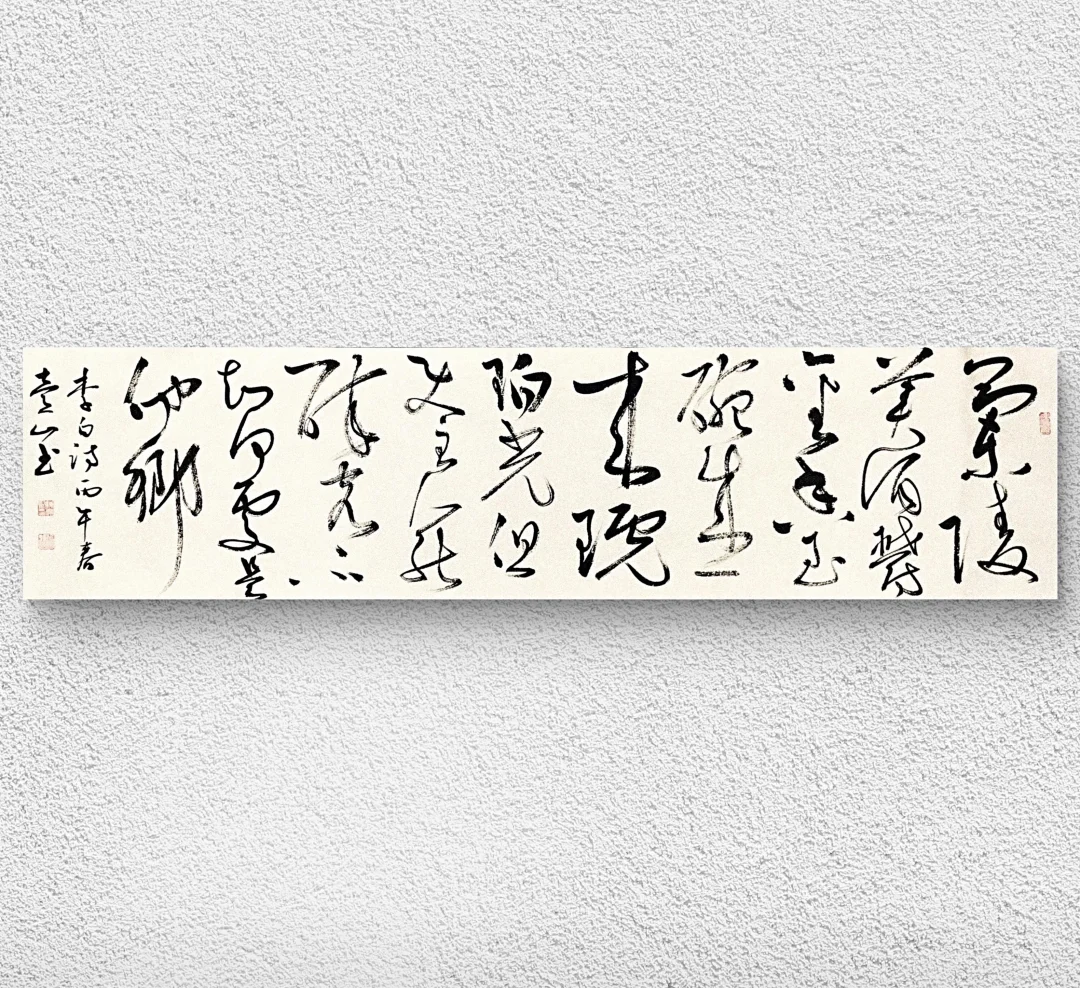 蘭陵
美酒鬱
金香玉
碗盛
來琥
珀光但
使主人能
醉客不
知何處是
他鄉
李白詩丙午春
山